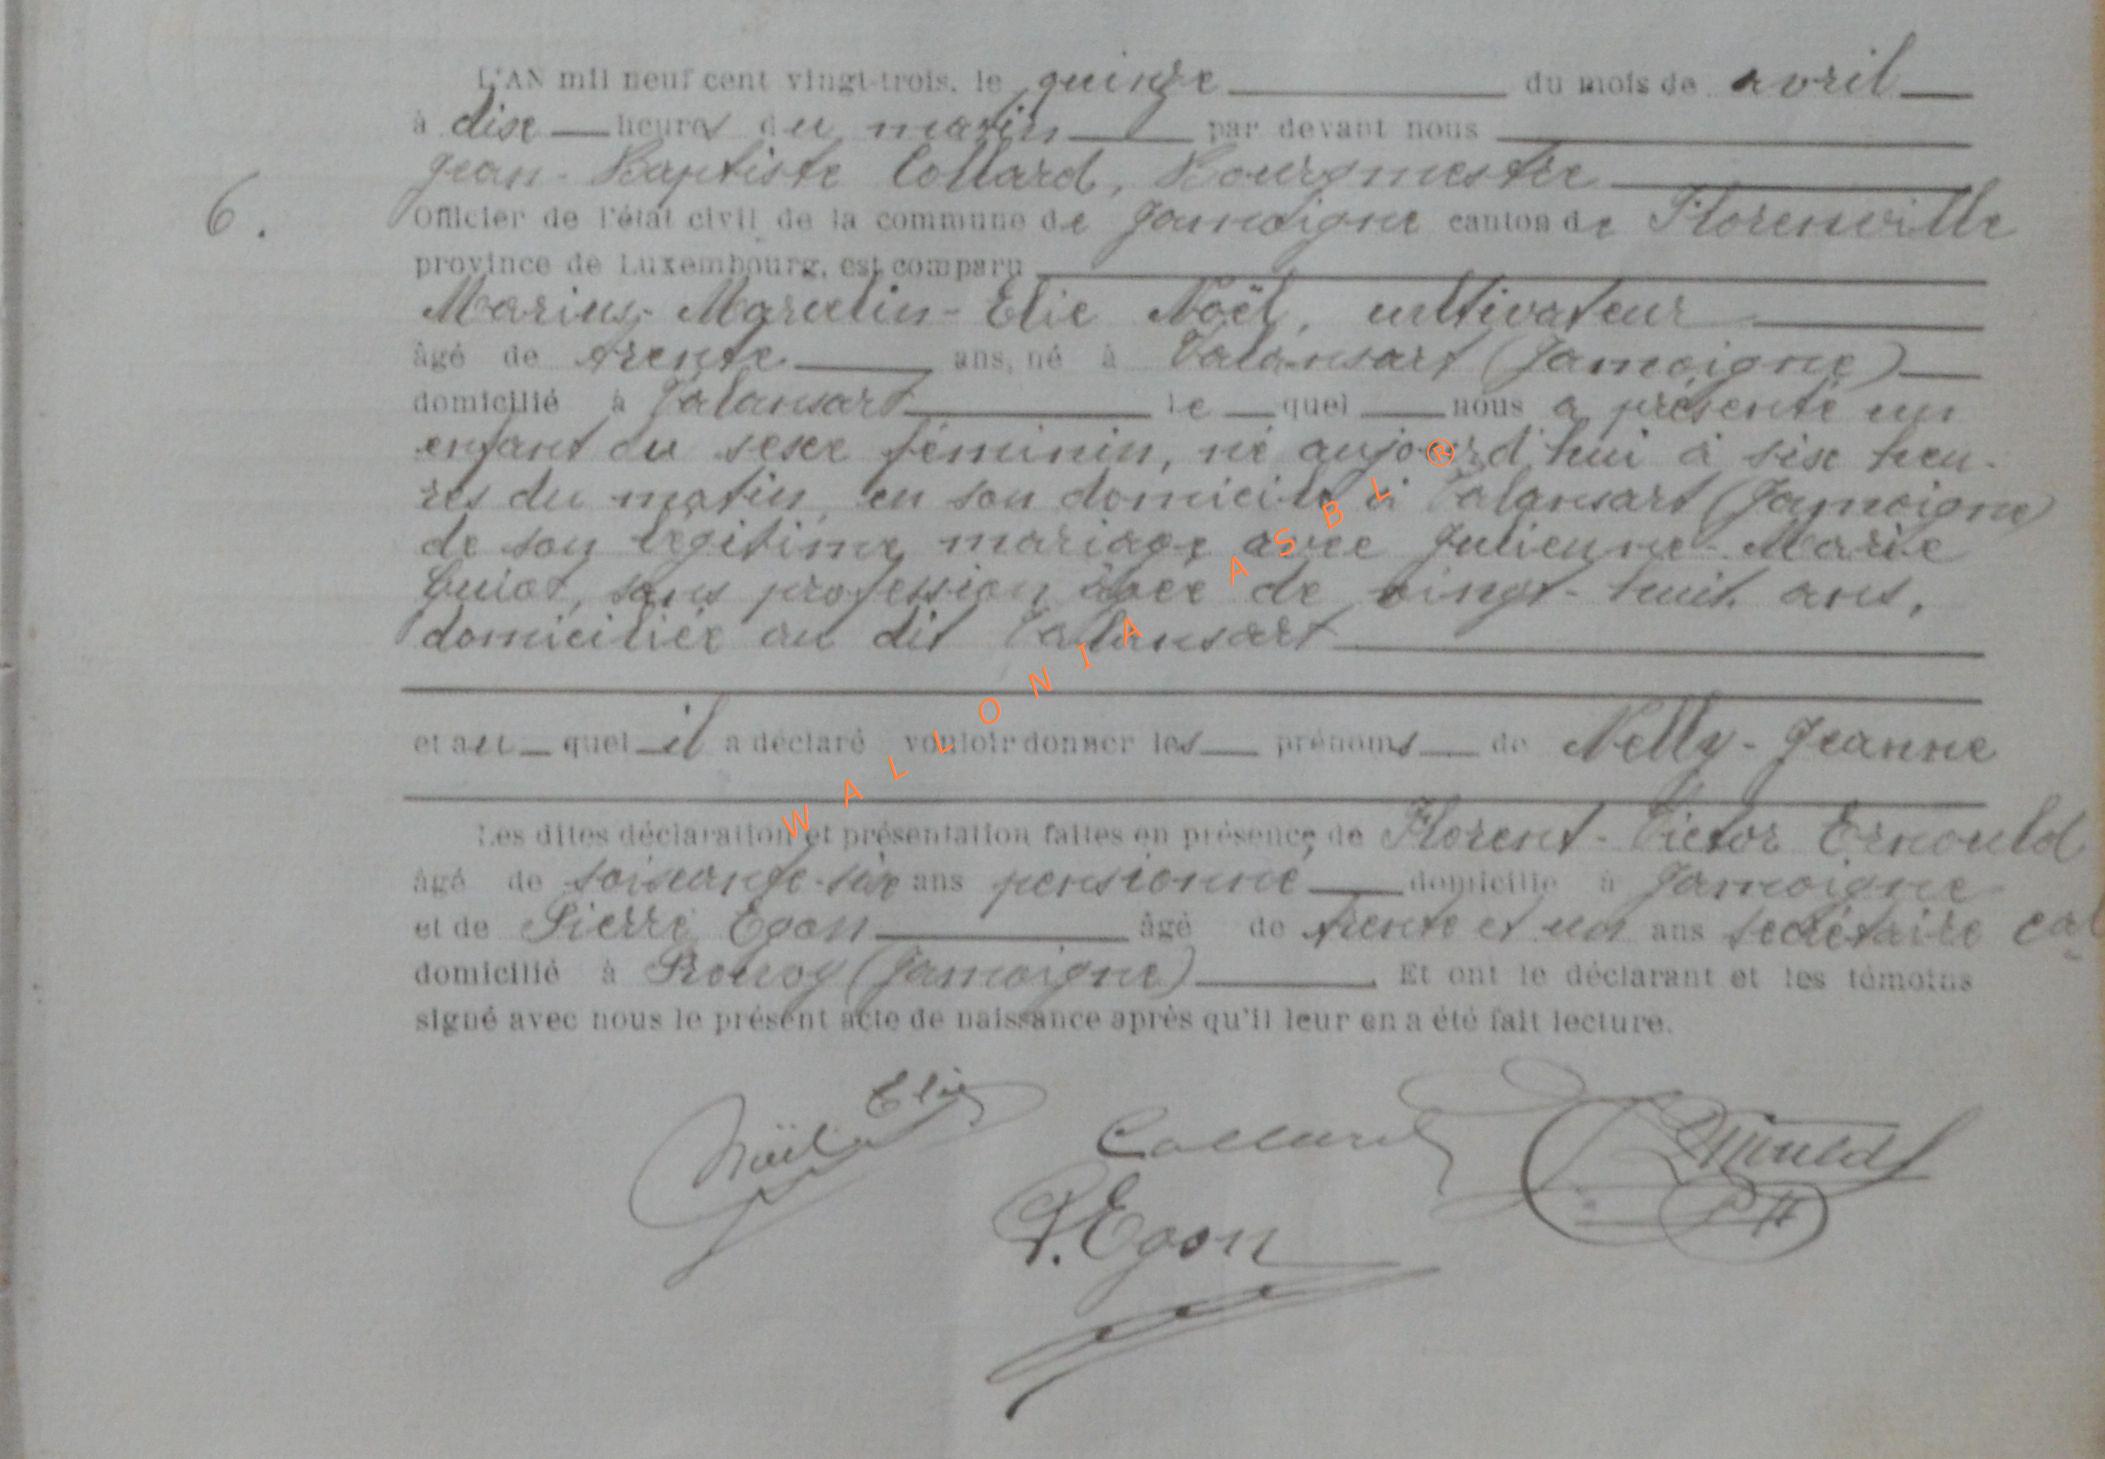 L'AN mil neuf cent vingt-trois, le quinze du mois de avril
à dix heures du matin par devant nous
Jean-Baptiste Collard, Bourgmestre
6. Officier de l'état civil de la commune de Jamoigne canton de Florenville
province de Luxembourg, est comparu
Marius-Marcelin-Elie Noël, cultivateur
âgé de trente ans, né à Valansart (Jamoigne)
domicilié à Valansart lequel nous a présenté un
enfant du sexe féminin, né aujourd'hui à six heu-
res du matin, en son domicile à Valansart (Jamoigne)
de son légitime mariage avec Julienne-Marie
Guiot, sans profession âgée de vingt-huit ans,
domiciliée au dit Valansart
et auquel il a déclaré vouloir donner les prénoms de Nelly-Jeanne
Les dites déclaration et présentation faites en présence de Florent-Victor Ernould
âgé de soixante-six ans pensionné domicilié à Jamoigne
et de Pierre Egon âgé de trente et un ans secrétaire cal
domicilié à Rouvoy (Jamoigne) Et ont le déclarant et les témoins
signé avec nous le présent acte de naissance après qu'il leur en a été fait lecture.
Noël Elie
Collard
Ernould
P. Egon
WALLONIA ASBL ®